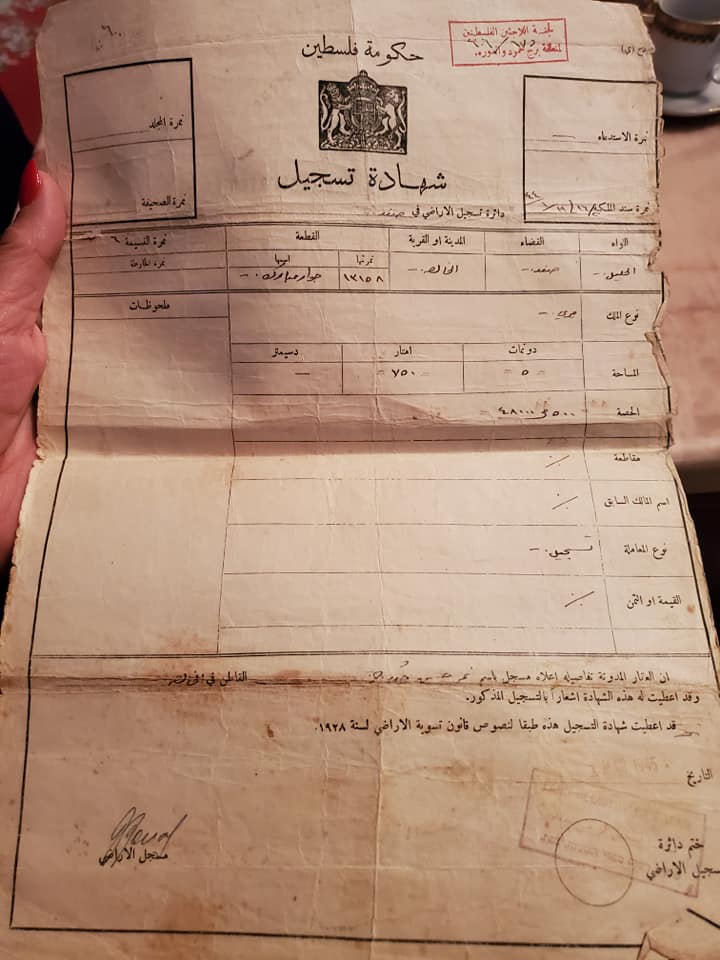 لجنة اللاجئين الفلسطينيين
لمنطقة برج حمود والدورة.
حكومة فلسطين
نمرة المجلد
نمرة الاستدعاء —
شهادة تسجيل
نمرة الصحيفة
نمرة سند التمليك
دائرة تسجيل الاراضي في صفد
اللواء القضاء المدينة او القرية القطعة نمرة القسيمة ٦
نمرتها اسمها نمرة الخارطة
الجليل صفد الخالصة ١٣١٥٨
نوع الملك ميري
ملحوظات
دونمات امتار دسيمتر
المساحة ٥ ٧٥٠ —
الحصة ٥٠٠
مقاطعة
اسم المالك السابق
نوع المعاملة تسجيل
القيمة او الثمن
ان العقار المدونة تفاصيله اعلاه مسجل باسم نمر حسن القاطن في
وقد اعطيت له هذه الشهادة اشعاراً بالتسجيل المذكور.
قد اعطيت شهادة التسجيل هذه طبقا لنصوص قانون تسوية الاراضي لسنة ١٩٢٨.
التاريخ
ختم دائرة
تسجيل الاراضي
مسجل الاراضي